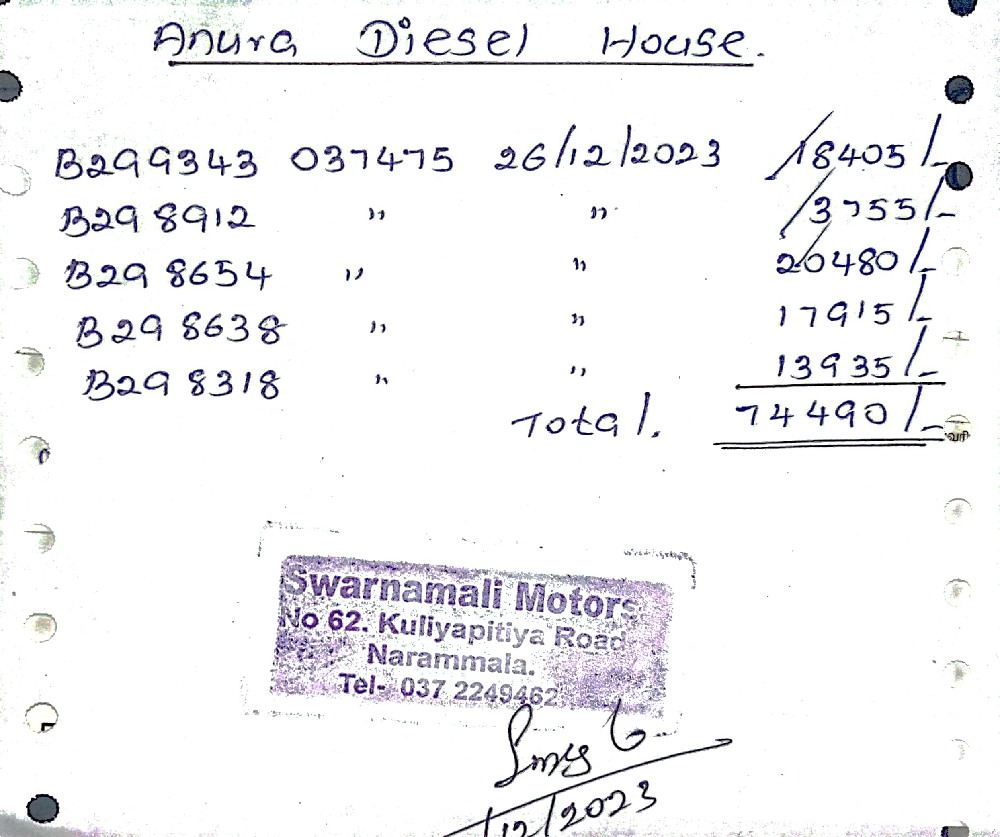 Anura Diesel House.
B299343 037475 26/12/2023 18405/-
B298912 " " 3755/-
B298654 " " 20480/-
B298638 " " 17915/-
B298318 " " 13935/-
Total. 74490/-
வரி
Swarnamali Motors
No 62. Kuliyapitiya Road
Narammala.
Tel- 037 2249462
/12/2023